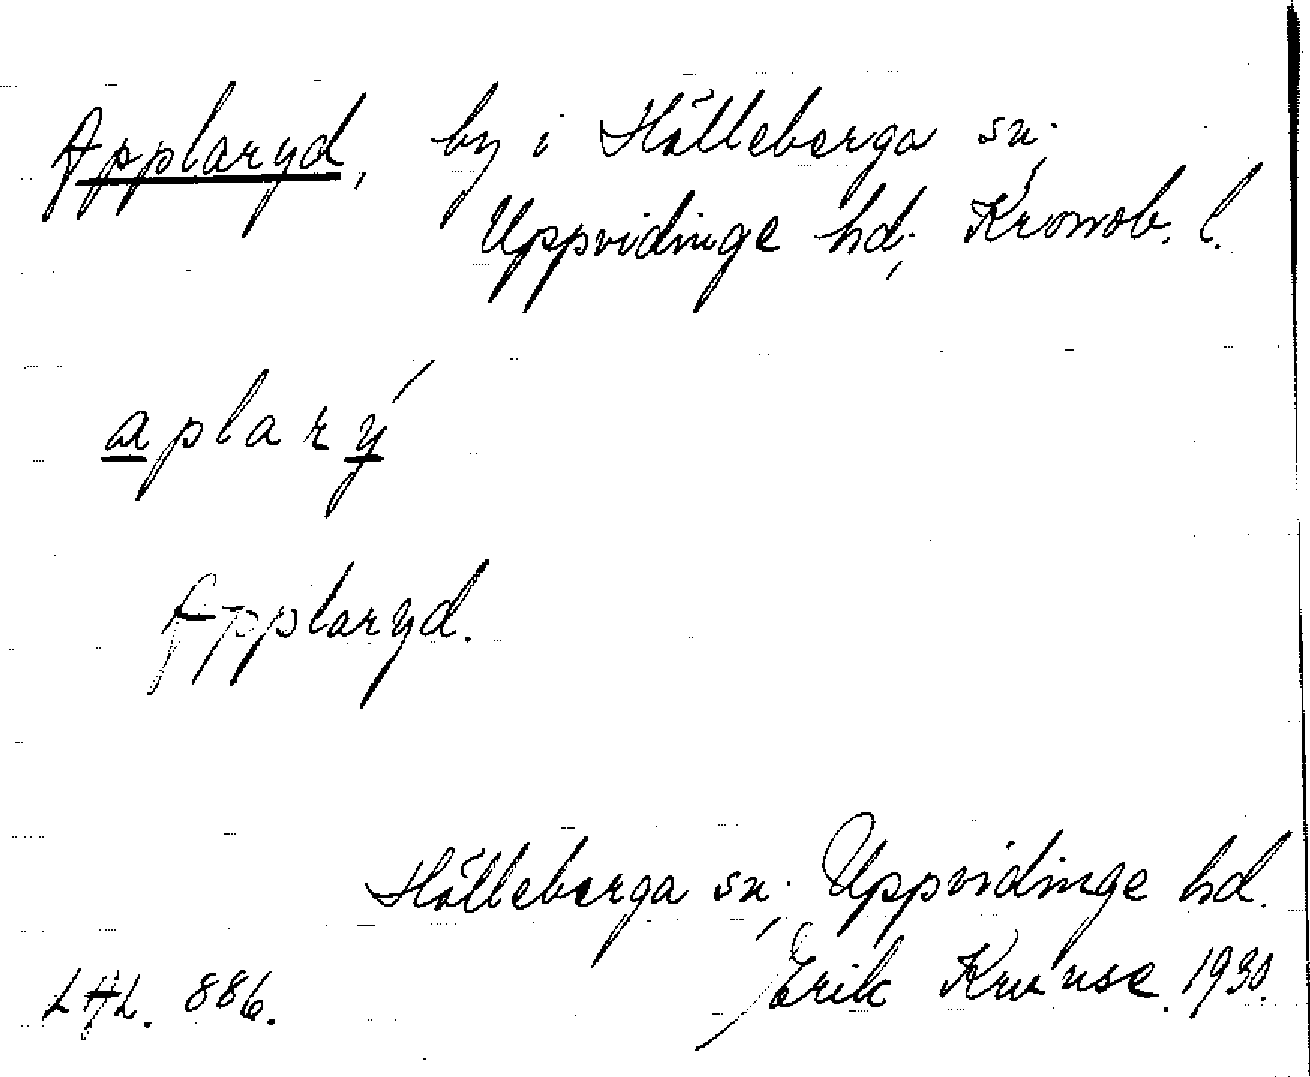 Applaryd, by i Hälleberga sn.
Uppvidinge hd., Kronob. l.
aplarý
Applaryd.
Hälleberga sn., Uppvidinge hd.
LAL. 886. Erik Kruuse. 1930.